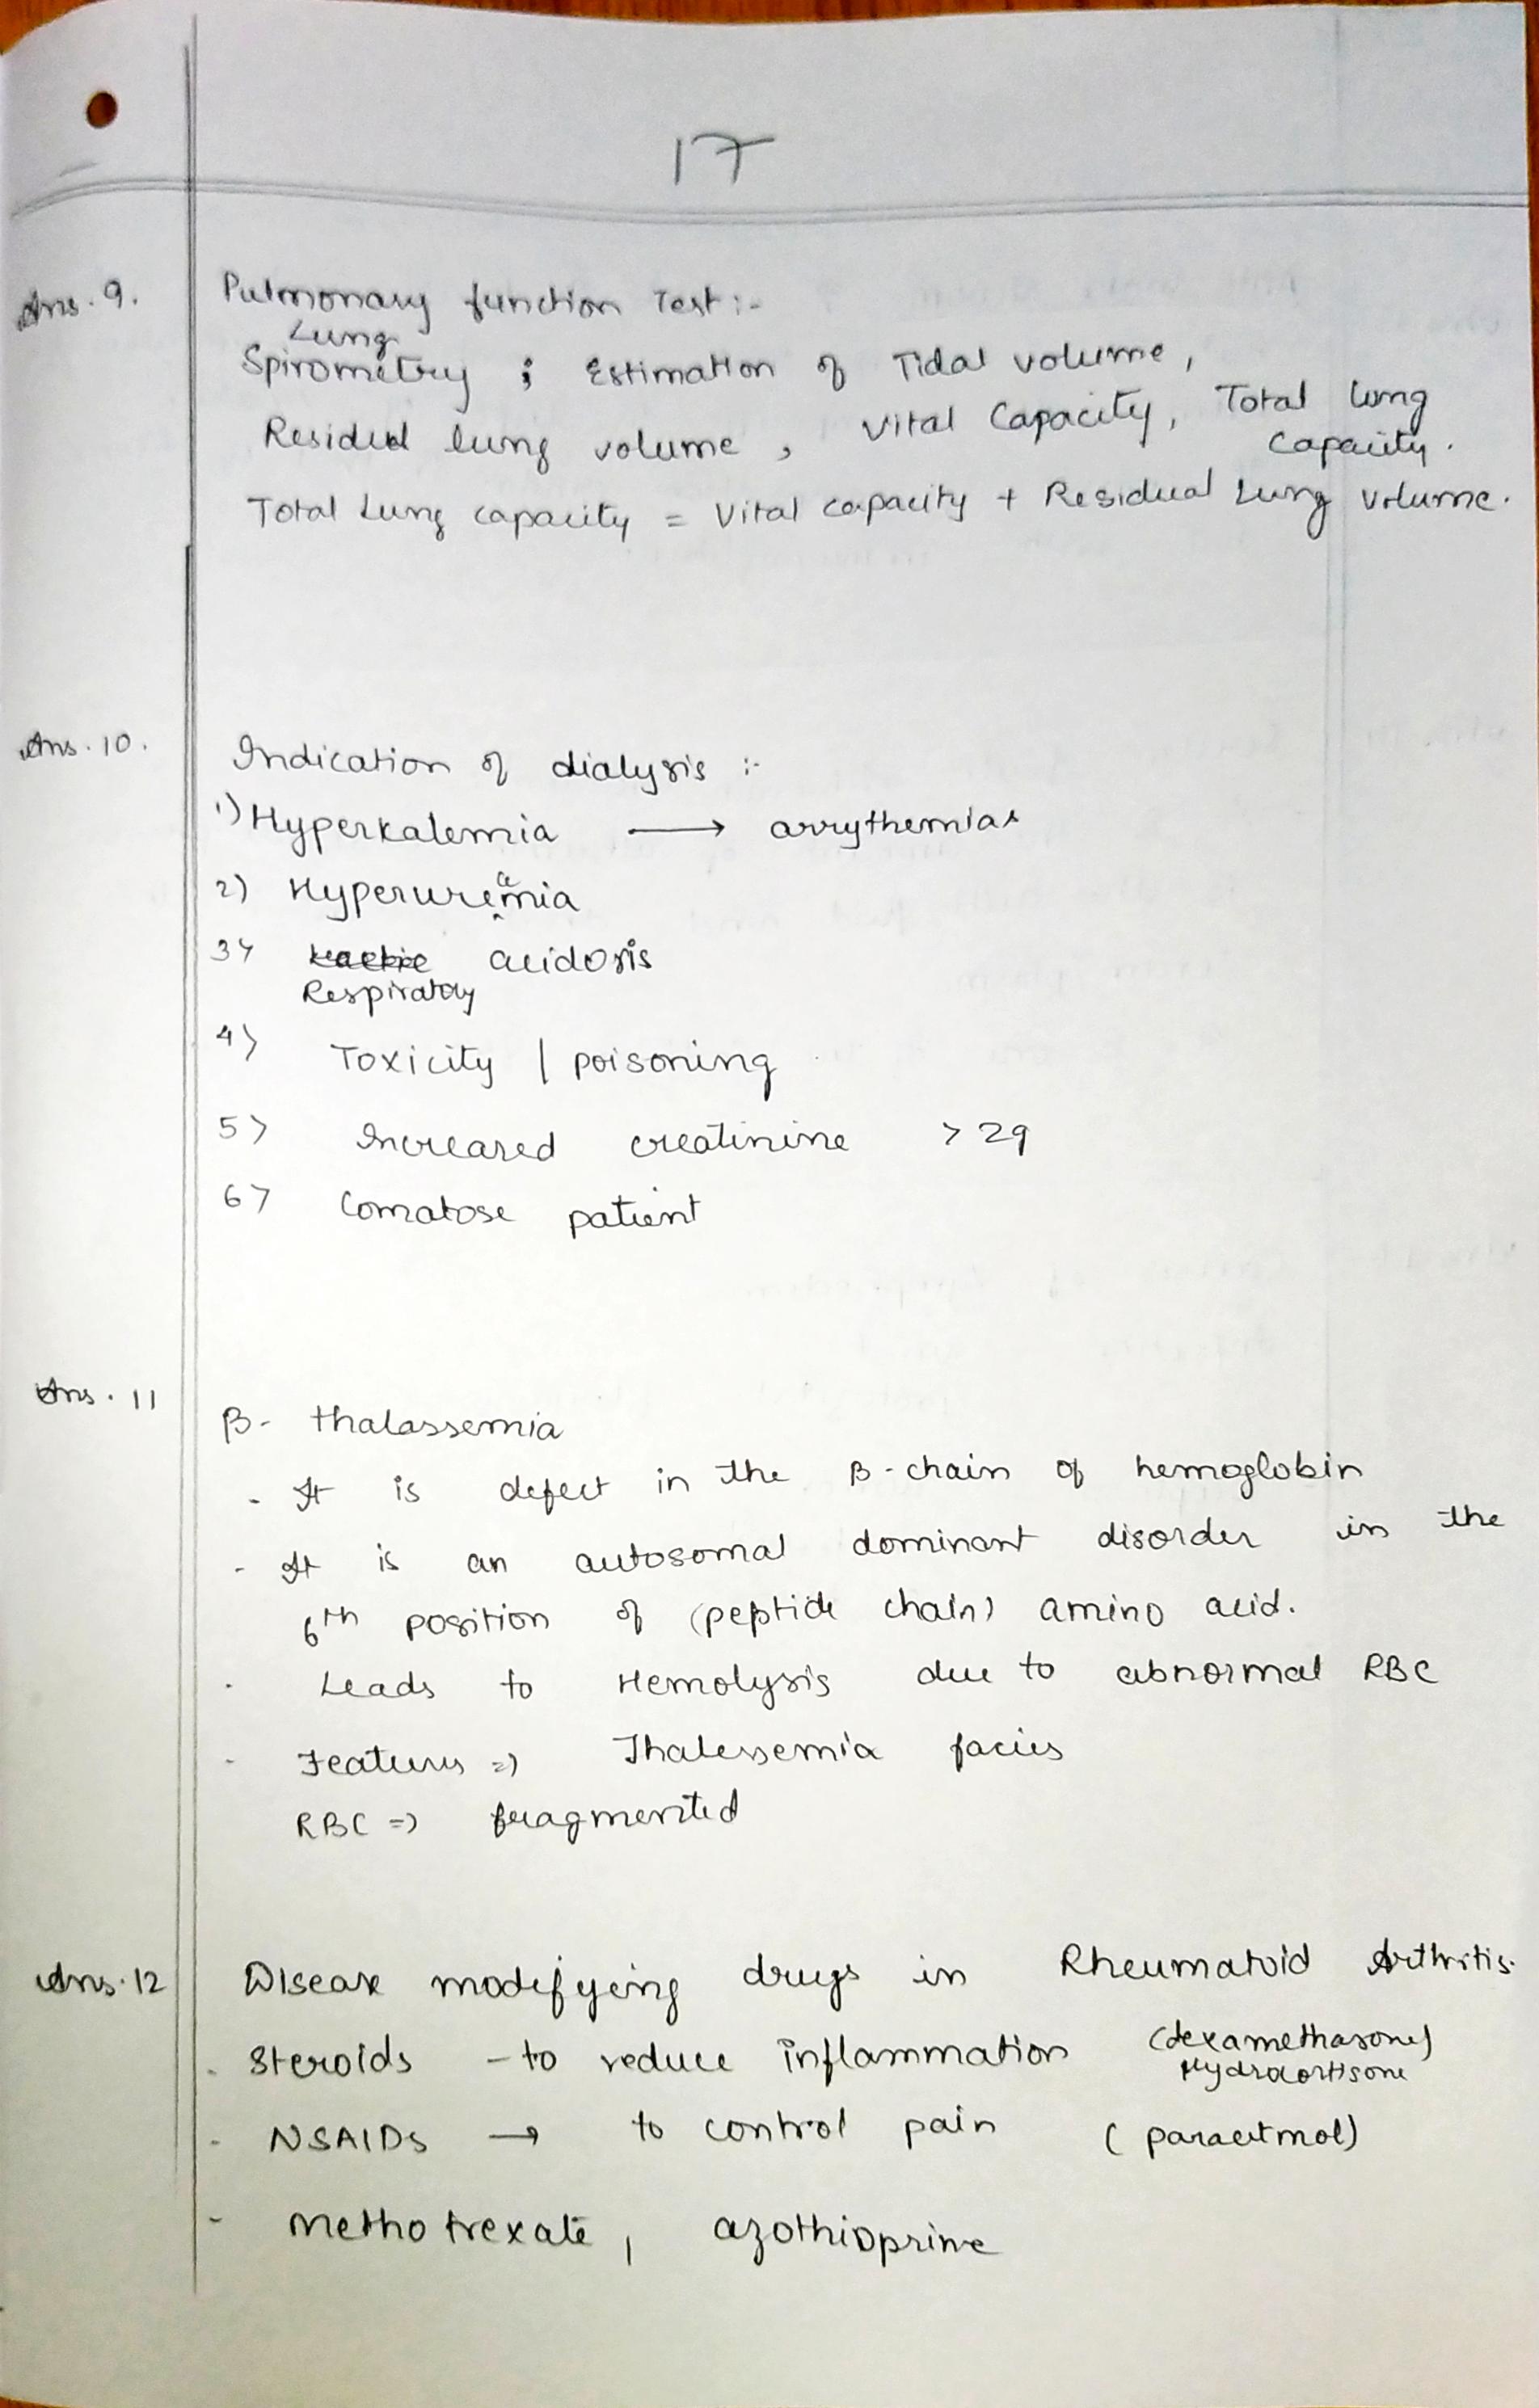 17
Ans. 9. Pulmonary function Test :-
Lung
Spirometry ; Estimation of Tidal volume,
Residual lung volume, Vital Capacity, Total lung
Capacity.
Total Lung capacity = Vital capacity + Residual Lung volume.
Ans. 10. Indication of dialysis :-
1) Hyperkalemia → arrythemias
2) Hyperuricemia
3) acidosis
Respiratory
4) Toxicity | poisoning
5) Increased creatinine > 29
6) Comatose patient
Ans. 11 β- thalassemia
- It is defect in the β-chain of hemoglobin
- It is an autosomal dominant disorder in the
6th position of (peptide chain) amino acid.
- Leads to Hemolysis due to abnormal RBC
- Features => Thalessemia facies
RBC => fragmented
Ans. 12 Disease modifying drugs in Rheumatoid Arthritis.
- Steroids - to reduce inflammation (dexamethasone)
Hydrocortisone
- NSAIDs → to control pain (paracetmol)
- Methotrexate, azothioprine